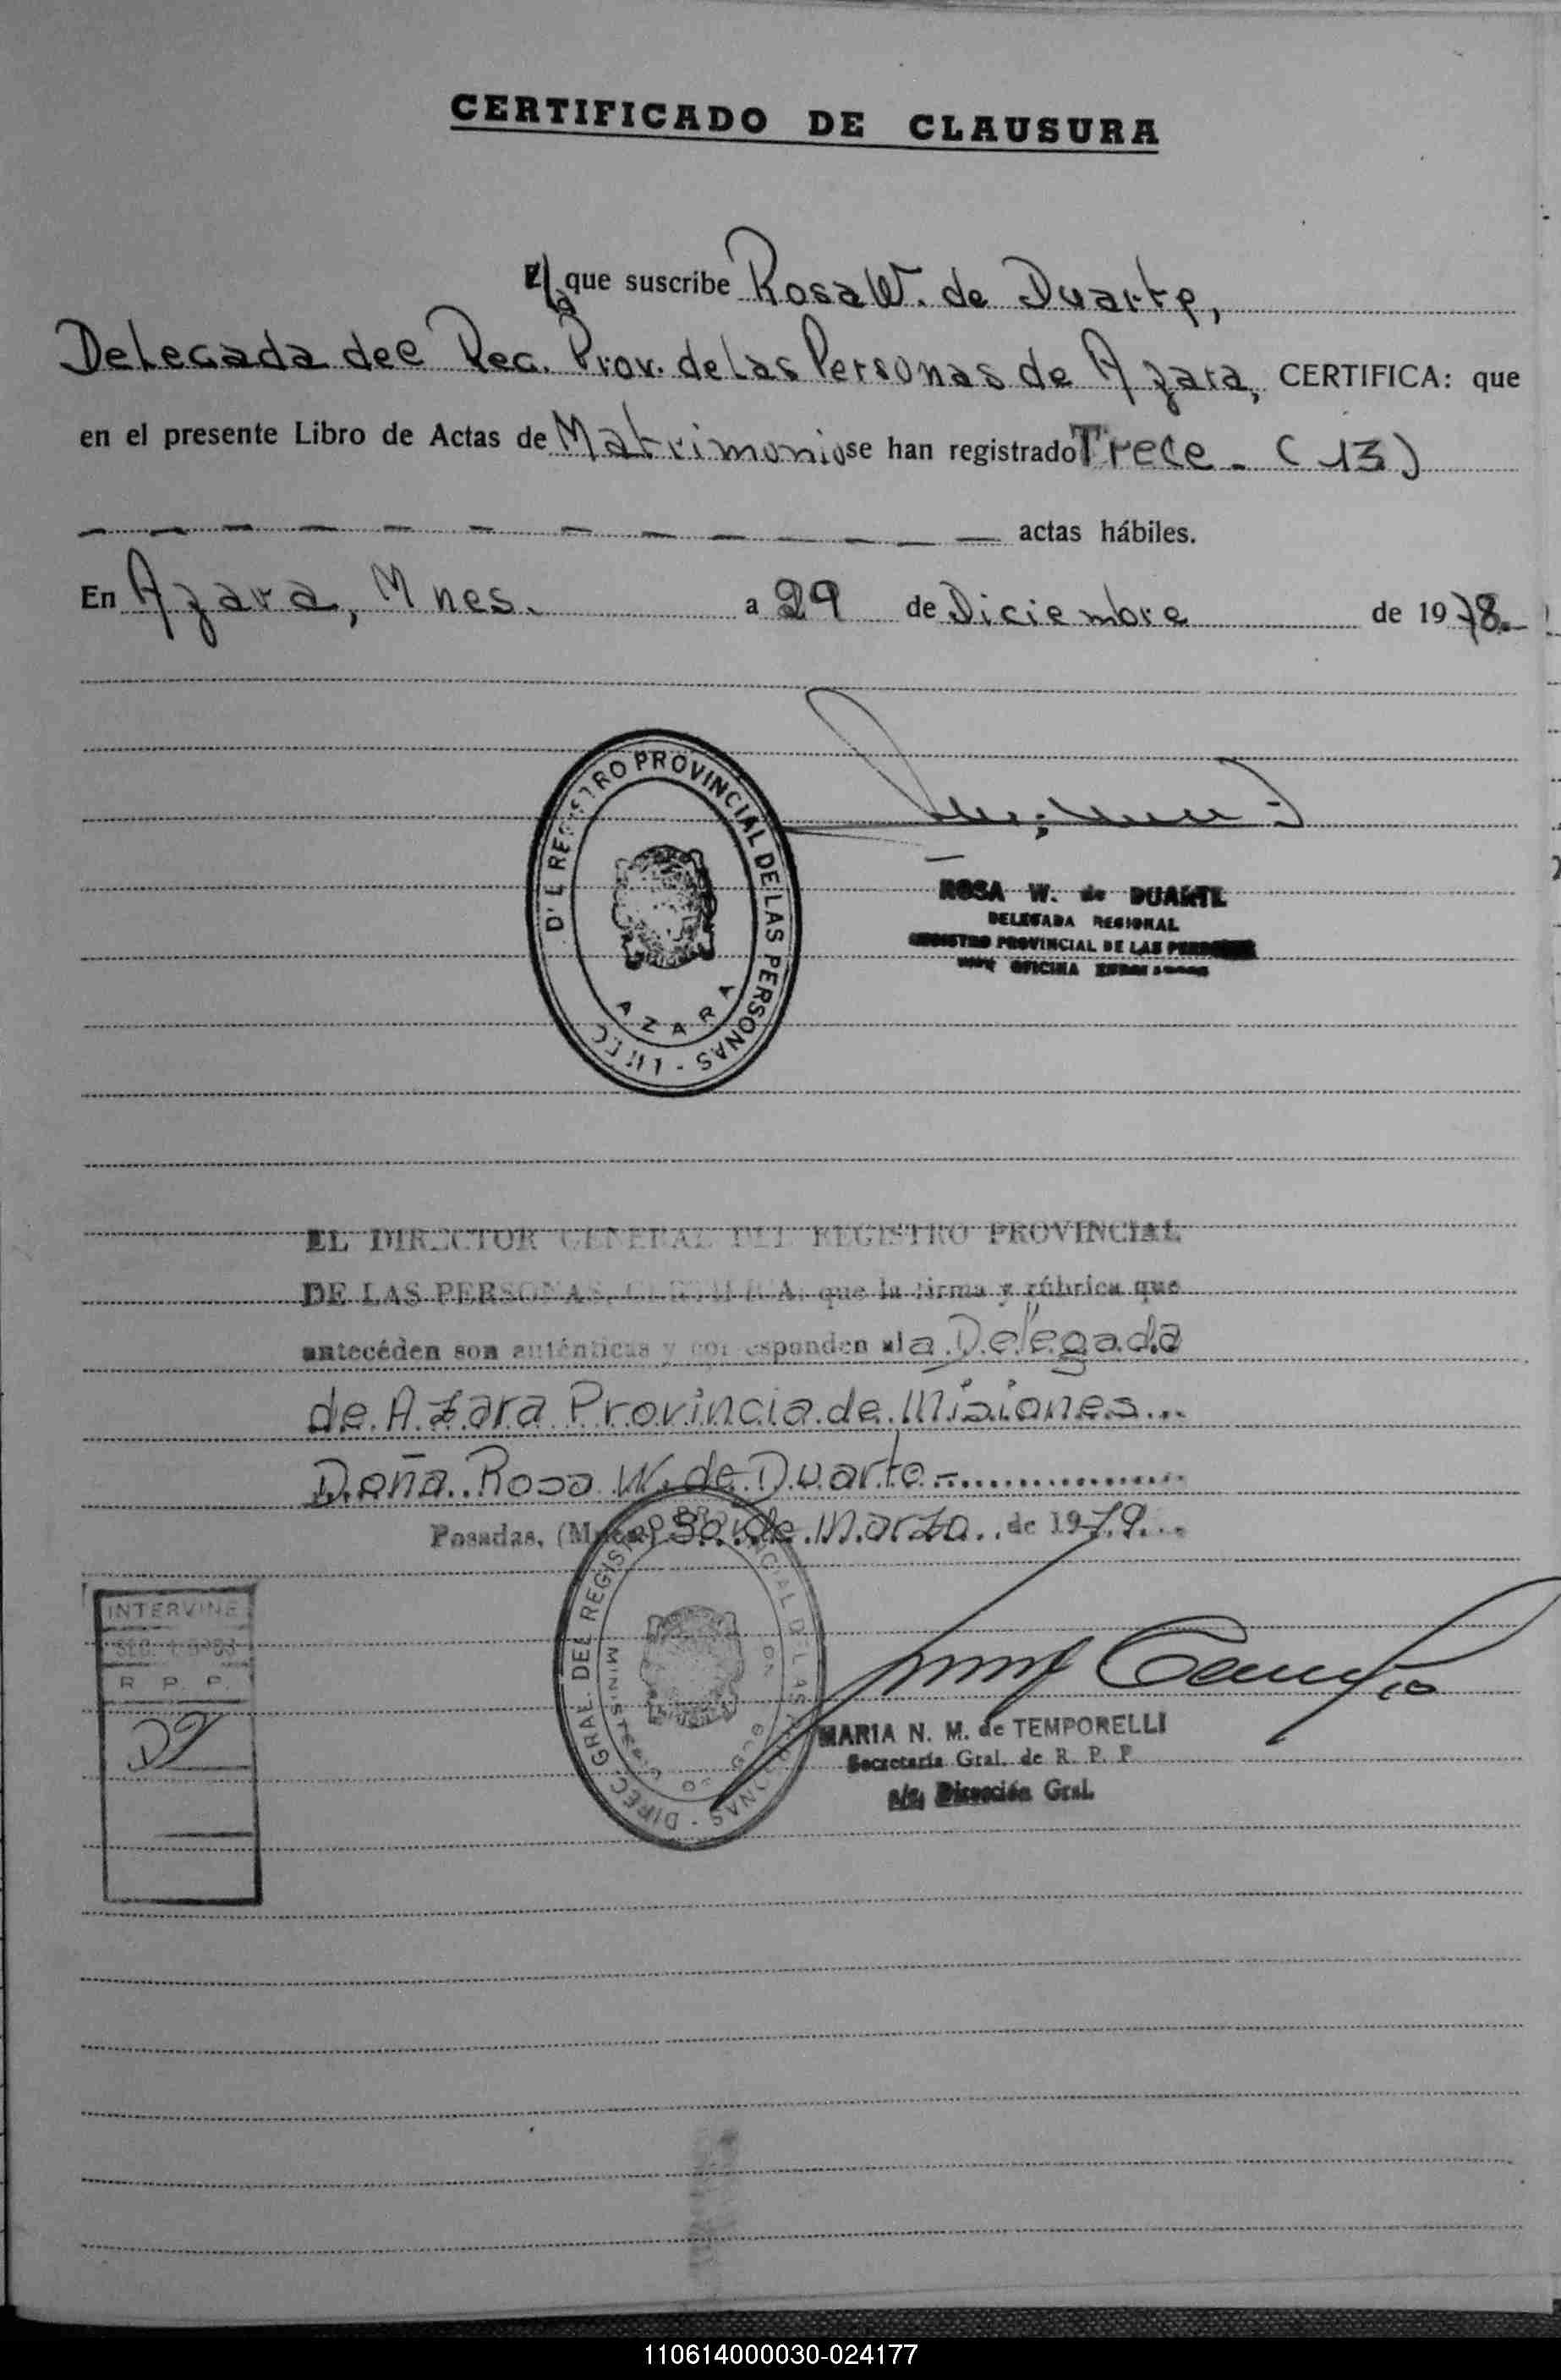 CERTIFICADO DE CLAUSURA
El la que suscribe Rosa W. de Duarte,
Delegada del Reg. Prov. de las Personas de Azara, CERTIFICA: que
en el presente Libro de Actas de Matrimonio se han registrado Trece. (13)
actas hábiles.
En Azara, Mnes. a 29 de Diciembre de 1978.
REGISTRO PROVINCIAL DE LAS PERSONAS
AZARA
ROSA W. de DUARTE
DELEGADA REGIONAL
REGISTRO PROVINCIAL DE LAS PERSONAS
OFICINA
EL DIRECTOR GENERAL DEL REGISTRO PROVINCIAL
DE LAS PERSONAS, CERTIFICA: que la firma y rúbrica que
antecéden son auténticas y corresponden a la Delegada
de Azara Provincia de Misiones...
Doña Rosa W. de Duarte.-
Posadas, (Mnes.) 30 de Marzo de 1979...
INTERVINE
R. P. P.
DIREC. GRAL. DEL REGISTRO PROVINCIAL DE LAS PERSONAS
MARIA N. M. de TEMPORELLI
Secretaría Gral. de R. P. P.
a/c. Dirección Gral.
110614000030-024177